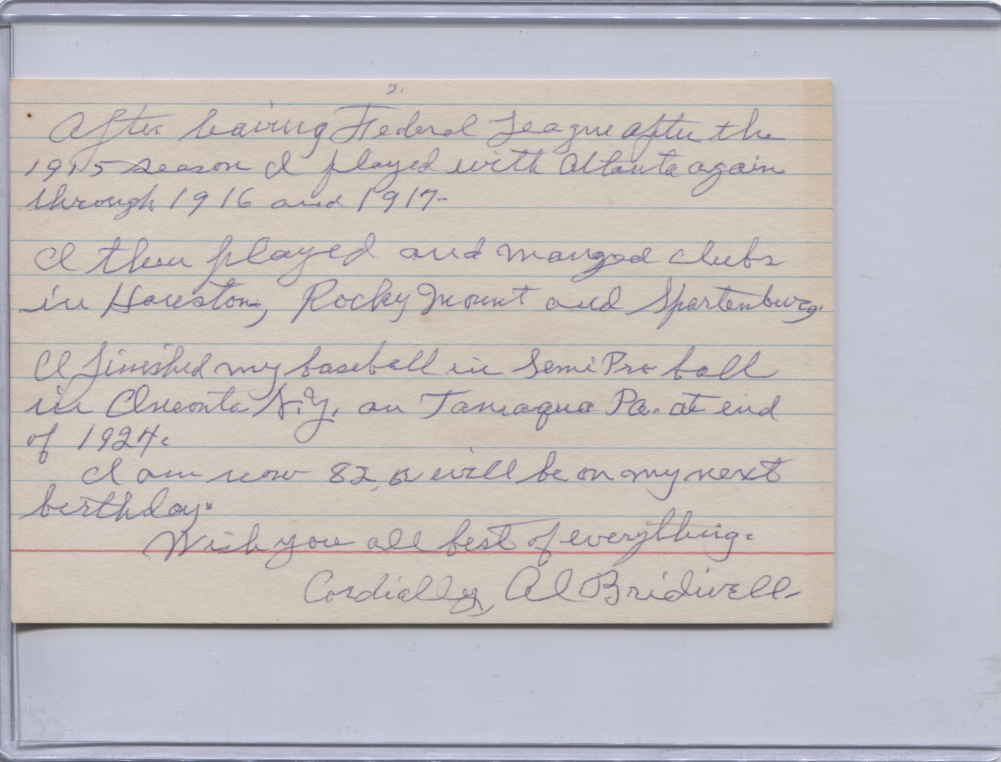 2.
After leaving Federal League after the
1915 season I played with Atlanta again
through 1916 and 1917-
I then played and manged clubs
in Houston, Rocky Mount and Spartenburg.
I finished my baseball in Semi Pro ball
in Oneonta N.Y. an Tamaqua Pa. at end
of 1924.
I am now 82, or will be on my next
birthday.
Wish you all best of everything.
Cordially, Al Bridwell-